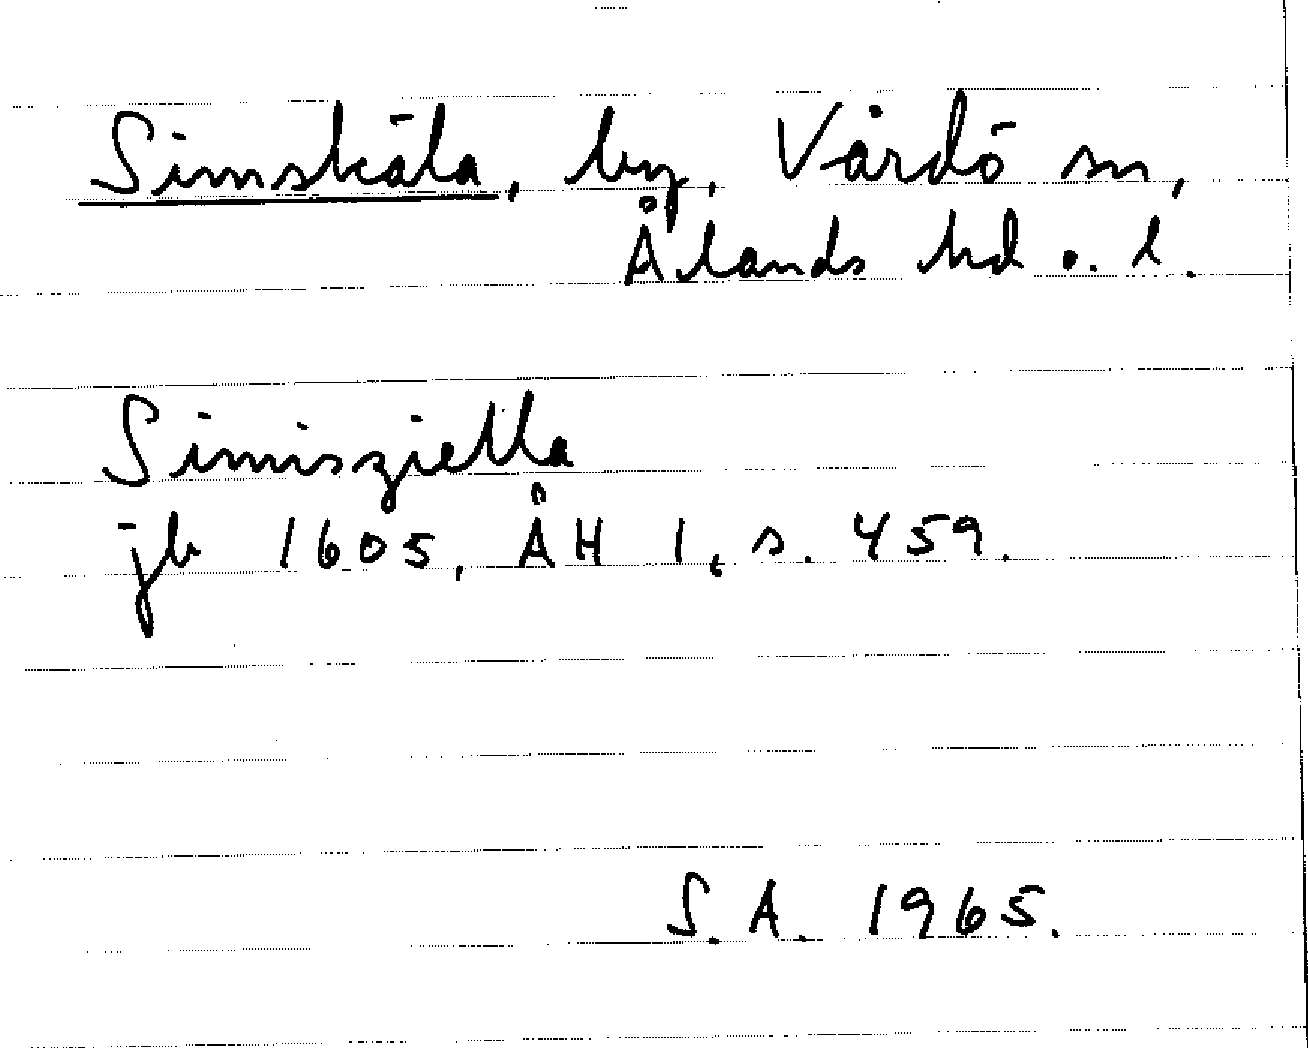 Simskäla, by, Vårdö sn,
Ålands hd o. l.
Simisziella
jb 1605, ÅH 1, s. 459.
S.A. 1965.